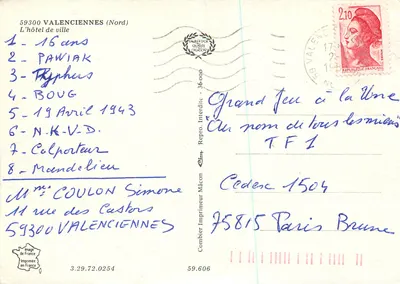 59300 VALENCIENNES (Nord)
L'hôtel de ville
1 - 16 ans
2 - PAWIAK
3 - Typhus
4 - BOUG
5 - 19 Avril 1943
6 - N.K.V.D.
7 - Colporteur
8 - Mandelieu
Mme COULON Simone
11 rue des Castors
59300 VALENCIENNES
3.29.72.0254
59.606
Combier Imprimeur Mâcon
Repro. Interdite - 36-000
2,10
Grand Jeu à la Une
"Au nom de tous les miens"
TF1
Cedex 1504
75815 Paris Brune